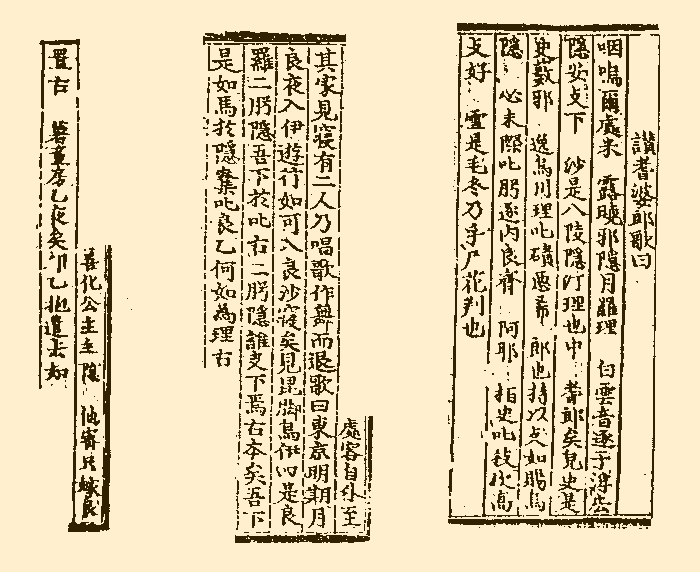 讃耆婆郎歌曰
咽嗚爾處米 露曉邪隱月羅理 白雲音逐于浮去
隱安支下 沙是八陵隱汀理也中 耆郎矣皃史是
史藪邪 逸烏川理叱磧惡希 郎也持以支如賜烏
隱 心未際叱肹逐內良齊 阿耶 栢史叱枝次高
支好 雪是毛冬乃乎尸花判也
處容自外至
其家見寢有二人乃唱歌作舞而退歌曰東京明期月
良夜入伊遊行如可入良沙寢矣見昆脚烏伊四是良
羅二肹隱吾下於叱古二肹隱誰支下焉古本矣吾下
是如馬於隱奪叱良乙何如為理古
善化公主主隱 他密只嫁良
置古 薯童房乙夜矣卯乙抱遣去如